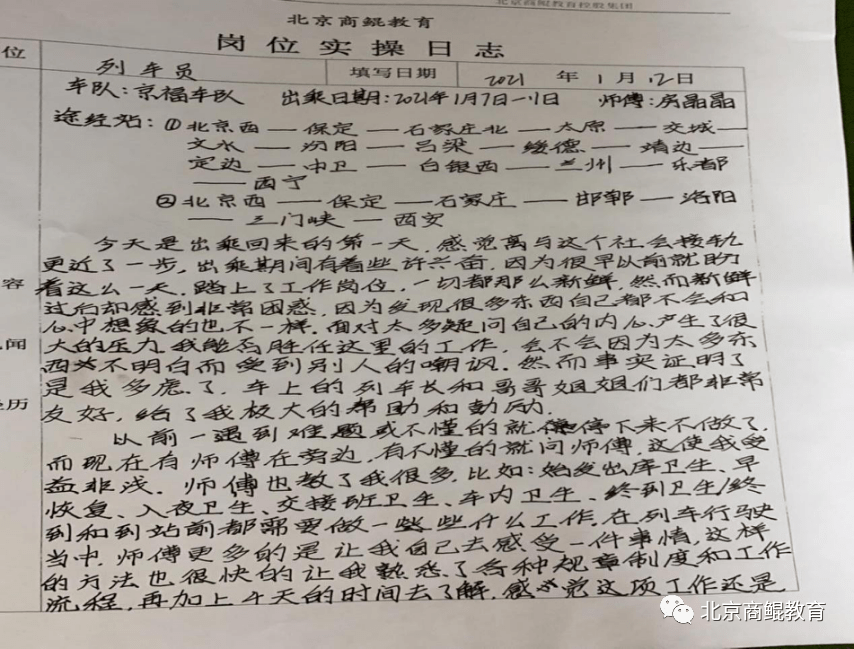 北京商鲲教育控股集团
北京商鲲教育
岗位实操日志
位 列车员 填写日期 2021 年 1 月 12 日
车队：京福车队 出乘日期：2021年1月7日—11日 师傅：房晶晶
途经站：①北京西——保定——石家庄北——太原——交城——
文水——汾阳——吕梁——绥德——靖边——
定边——中卫——白银西——兰州——乐都
——西宁
②北京西——保定——石家庄——邯郸——洛阳
——三门峡——西安
今天是出乘回来的第一天，感觉离与这个社会接轨
更近了一步，出乘期间有着些许兴奋，因为很早以前就盼
容 着这么一天，踏上了工作岗位，一切都那么新鲜，然而新鲜
过后却感到非常困惑，因为发现很多东西自己都不会和
心中想象的也不一样。面对太多疑问自己的内心产生了很
闻 大的压力，我能否胜任这里的工作，会不会因为太多东
西不明白而受到别人的嘲讽。然而事实证明了
是我多虑了，车上的列车长和哥哥姐姐们都非常
历 友好，给了我极大的帮助和勉励。
以前一遇到难题或不懂的就停下来不做了，
而现在有师傅在旁边，有不懂的就问师傅，这使我受
益非浅。师傅也教了我很多，比如：始发出库卫生、早
恢复、入夜卫生、交接班卫生、车内卫生、终到卫生/终
到和到站前都需要做一些些什么工作，在列车行驶
当中，师傅更多的是让我自己去感受一件事情，这样
的方法也很快的让我熟悉了各种规章制度和工作
流程，再加上天的时间去了解，感觉这项工作还是
北京商鲲教育